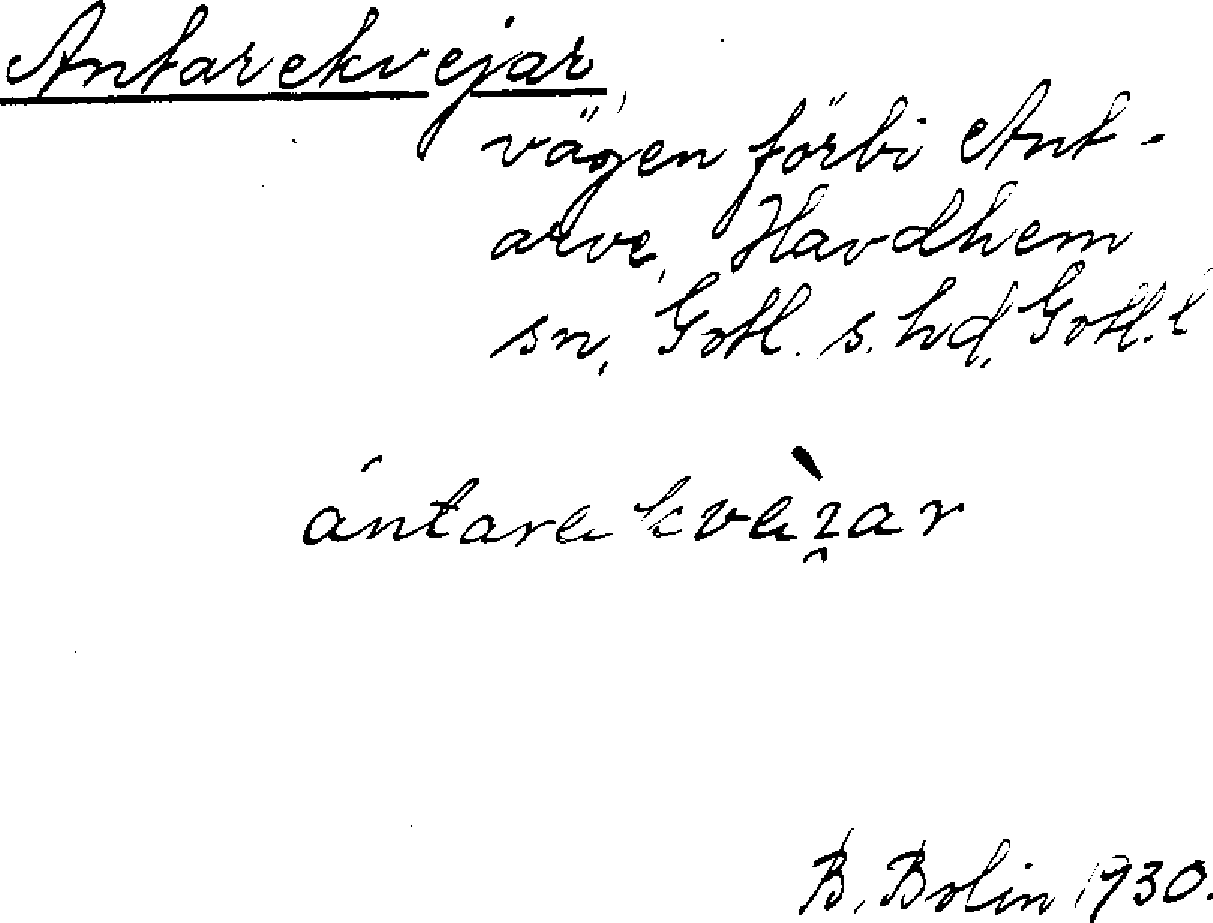 Antarekvejar,
vägen förbi Ant-
arve, Havdhem
sn, Gotl. s. hd, Gotl. l
B. Bolin 1930.